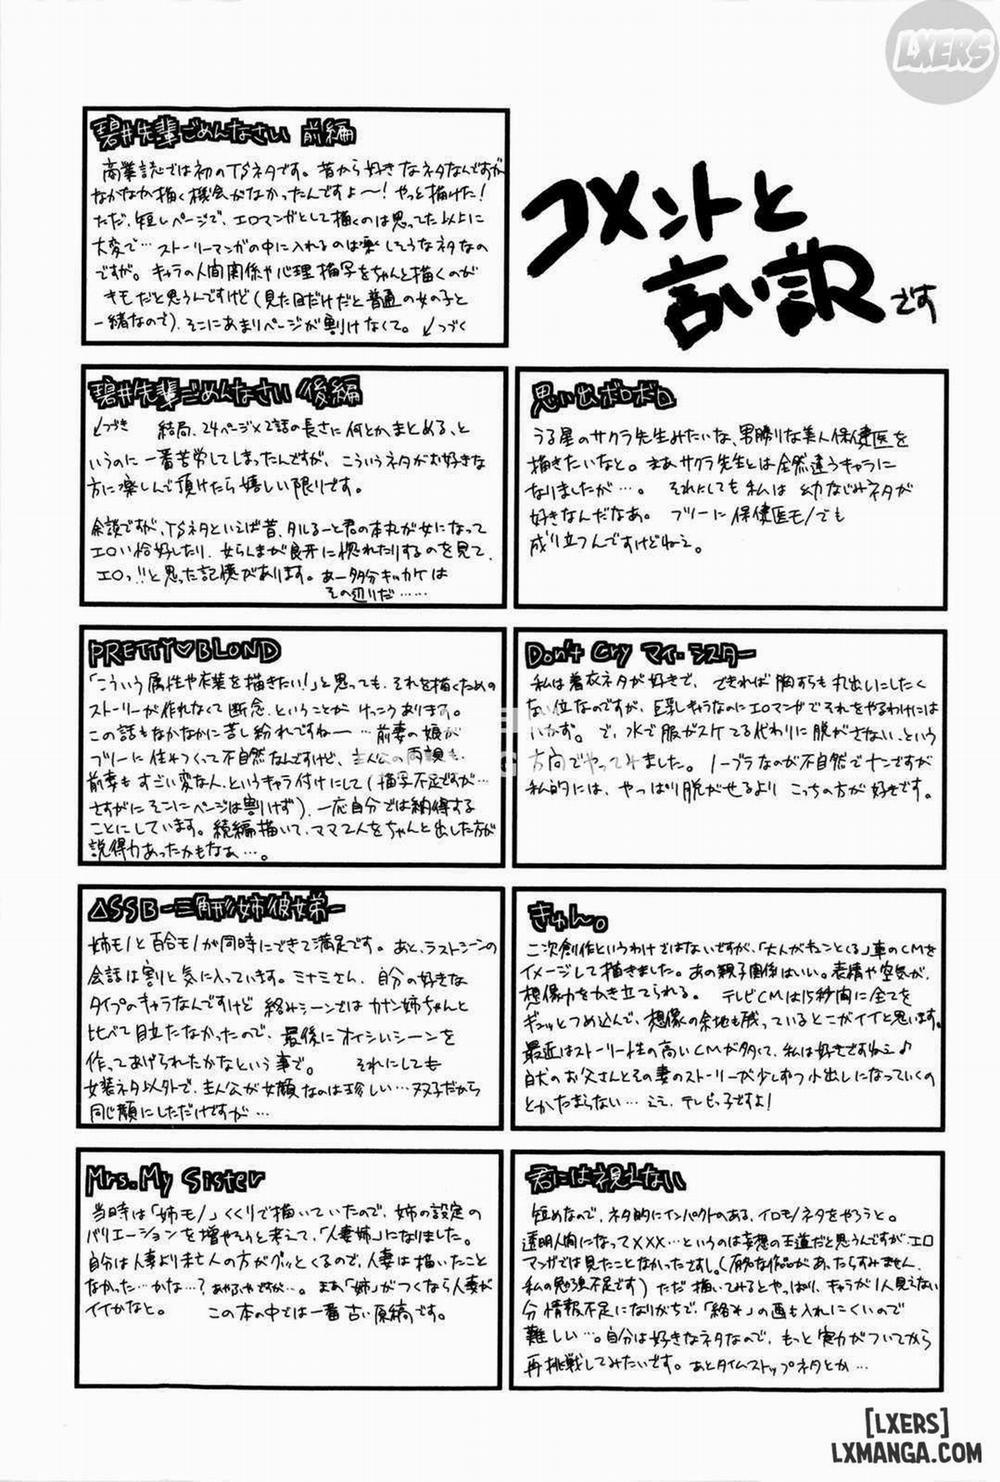 LXERS
コメントと
言い訳です
碧井先輩ごめんなさい 前編
商業誌では初のTSネタです。昔から好きなネタなんですが
なかなか描く機会がなかったんですよ〜!やっと描けた!
ただ、短いページで、エロマンガとして描くのは思ってた以上に
大変で…ストーリーマンガの中に入れるのは楽しそうなネタなの
ですが。キャラの人間関係や心理描写をちゃんと描くのが
キモだと思うんですけど(見た目だけだと普通の女の子と
一緒なので)、そこにあまりページが割けなくて。↙つづく
碧井先輩ごめんなさい 後編
↘つづき 結局、24ページ×2話の長さに何とかまとめる、と
いうのに一番苦労してしまったんですが、こういうネタがお好きな
方に楽しんで頂けたら嬉しい限りです。
余談ですが、TSネタといえば昔、タルるートくんの本丸が女になって
エロい格好したり、女らんまが良牙に惚れたりするのを見て、
エロっ!!と思った記憶があります。あー多分キッカケは
その辺りだ……
思い出ボロボロ
うる星のサクラ先生みたいな、男勝りな美人保健医を
描きたいなと。まあサクラ先生とは全然違うキャラに
なりましたが…。それにしても私は幼なじみネタが
好きなんだなあ。フツーに保健医モノでも
成り立つんですけどねえ。
PRETTY♡BLOND
「こういう属性や衣装を描きたい!」と思っても、それを描くための
ストーリーが作れなくて断念、ということがけっこうあります。
この話もなかなかに苦し紛れですねー…前妻の娘が
フツーに住みつくって不自然なんですけど、主人公の両親も、
前妻もすごい変な人、というキャラ付けにして(描写不足ですが…
さすがにそこにページは割けず)、一応自分では納得する
ことにしています。続編描いて、ママ2人をちゃんと出した方が
説得力あったかもなあ…。
Don't Cry マイ・シスター
私は着衣ネタが好きで、できれば胸すらも丸出しにしたく
ない位なのですが、巨乳キャラなのにエロマンガでそれをやるわけには
いかず。で、水で服がスケてる代わりに脱がさない、という
方向でやってみました。ノーブラなのが不自然でナンですが
私的には、やっぱり脱がせるよりこっちの方が好きです。
△SSB-三角形姉彼女弟-
姉モノと百合モノが同時にできて満足です。あと、ラストシーンの
会話は割と気に入っています。ミナミさん、自分の好きな
タイプのキャラなんですけど絡みシーンではカナン姉ちゃんと
比べて目立たなかったので、最後にオイシいシーンを
作ってあげられたかなという事で。それにしても
女装ネタ以外で、主人公が女顔なのは珍しい…双子だから
同じ顔にしただけですが…
きゅん。
二次創作というわけではないですが、「大人がキュンとくる」車のCMを
イメージして描きました。あの親子関係はいい。表情や空気が、
想像力をかき立てられる。テレビCMは15秒間に全てを
ギュッとつめ込んで、想像の余地も残っているとこがイイと思います。
最近はストーリー性の高いCMが多くて、私は好きですねえ♪
白犬のお父さんとその妻のストーリーが少しずつ小出しになっていくの
とかたまらない…ええ、テレビっ子ですよ!
Mrs. My Sister
当時は「姉モノ」くくりで描いていたので、姉の設定の
バリエーションを増やそうと考えて、「人妻姉」になりました。
自分は人妻より未亡人の方がグッとくるので、人妻は描いたこと
なかった…かな…?あやふやですが…。まあ「姉」がつくなら人妻が
イイかなと。この本の中では一番古い原稿です。
君には視えない
短めなので、ネタ的にインパクトのある、イロモノネタをやろうと。
透明人間になって×××…というのは妄想の王道だと思うんですが、エロ
マンガでは見たことなかったですし。(有名な作品があったらすみません、
私の勉強不足です)ただ描いてみるとやっぱり、キャラが1人見えない
分情報不足になりがちで、「絡み」の画も入れにくいので
難しい…。自分は好きなネタなので、もっと実力がついてから
再挑戦してみたいです。あとタイムストップネタとか…
[LXERS]
LXMANGA.COM